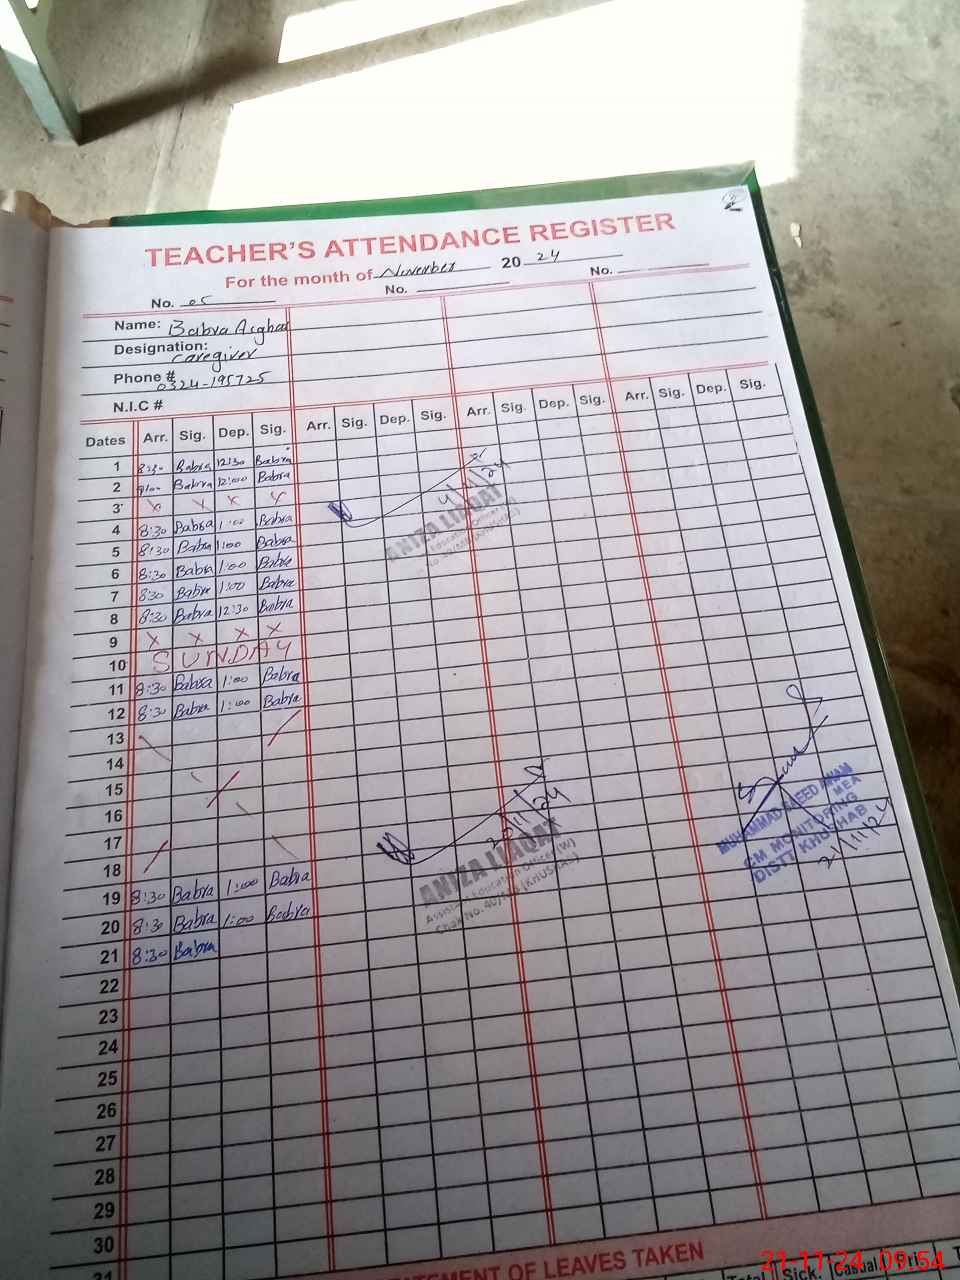 TEACHER'S ATTENDANCE REGISTER
For the month of November 2024
No. 05 No. No.
Name: Babra Asghar
Designation: Caregiver
Phone # 0324-195725
N.I.C #
Dates Arr. Sig. Dep. Sig. Arr. Sig. Dep. Sig. Arr. Sig. Dep. Sig. Arr. Sig. Dep. Sig.
1 8:30 Babra 12:30 Babra
2 Babra 12:00 Babra
3 x x x x
4 8:30 Babra 1:00 Babra
5 8:30 Babra 1:00 Babra
6 8:30 Babra 1:00 Babra
7 8:30 Babra 1:00 Babra
8 8:30 Babra 12:30 Babra
9 x x x x
10 SUNDAY
11 8:30 Babra 1:00 Babra
12 8:30 Babra 1:00 Babra
13
14
15
16
17
18
19 8:30 Babra 1:00 Babra
20 8:30 Babra 1:00 Babra
21 8:30 Babra
22
23
24
25
26
27
28
29
30
31
4/11/24
ANIZA LIAQAT
20/11/24
ANIZA LIAQAT
Assistant Education Officer (W)
Chak No. 40/MB (KHUSHAB)
MUHAMMAD SAEED AWAN
MEA
CM MONITORING
DISTT KHUSHAB
21/11/24
STATEMENT OF LEAVES TAKEN
Total Sick Casual Pri
21-11-24 09:54